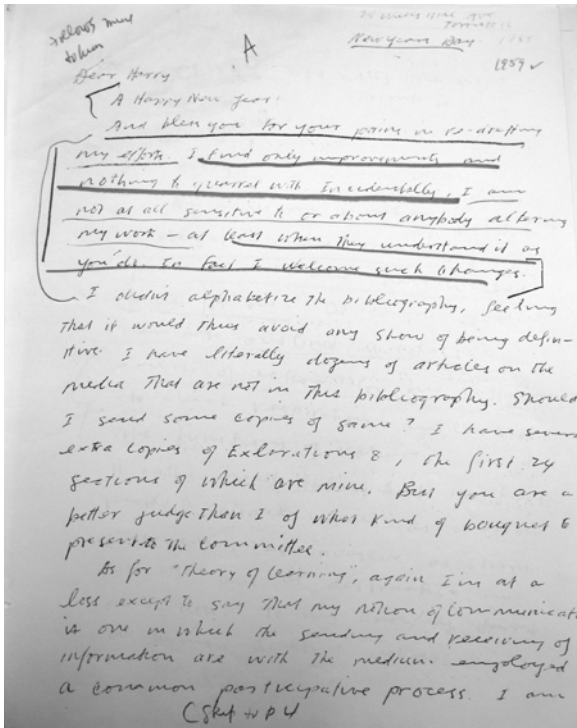 A
New Year Day
1959 ✓
Dear Harry
A Happy New Year.
And bless you for your pains in re-drafting
my effort. I find only improvements and
nothing to quarrel with. Incidentally, I am
not at all sensitive to or about anybody altering
my work – at least when they understand it as
you do. In fact I welcome such changes.
I didn't alphabetize the bibliography, feeling
that it would thus avoid any show of being defin-
itive. I have literally dozens of articles on the
media that are not in this bibliography. Should
I send some copies of same? I have severa
extra copies of Explorations 8, the first 24
sections of which are mine. But you are a
better judge than I of what kind of bouquet to
present to the Committee.
As for "theory of learning", again I'm at a
loss except to say that my notion of communicati
is one in which the sending and receiving of
information are with the medium employed
a common participative process. I am
(Skip to P4